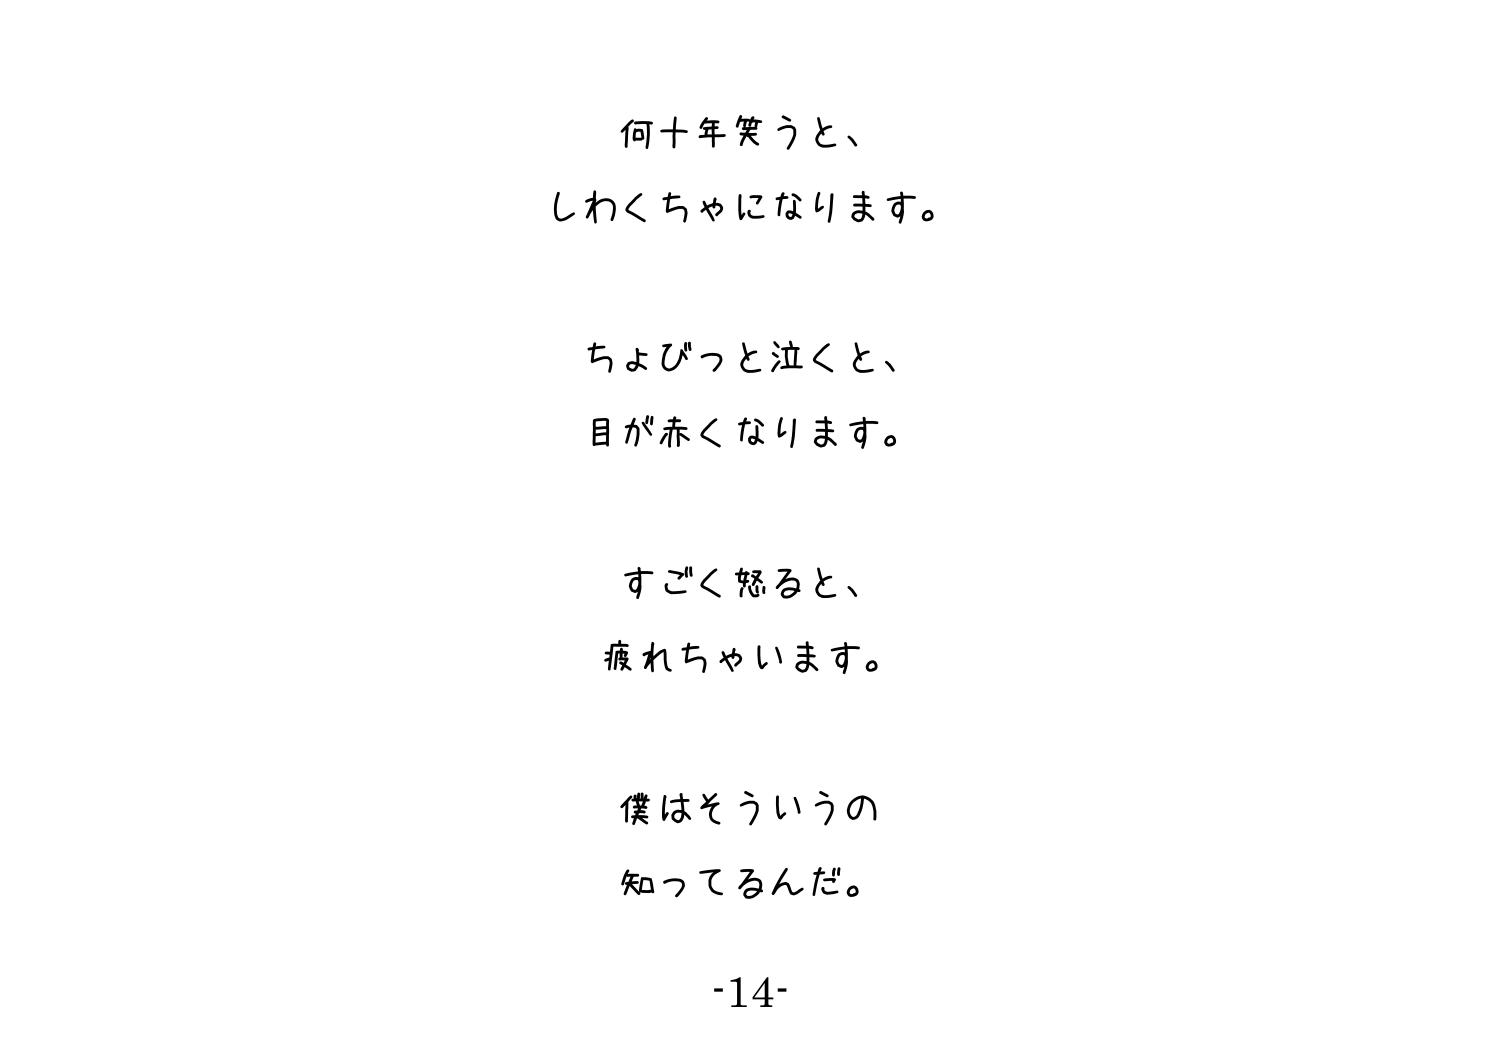 何十年笑うと、
しわくちゃになります。
ちょびっと泣くと、
目が赤くなります。
すごく怒ると、
疲れちゃいます。
僕はそういうの
知ってるんだ。
-14-